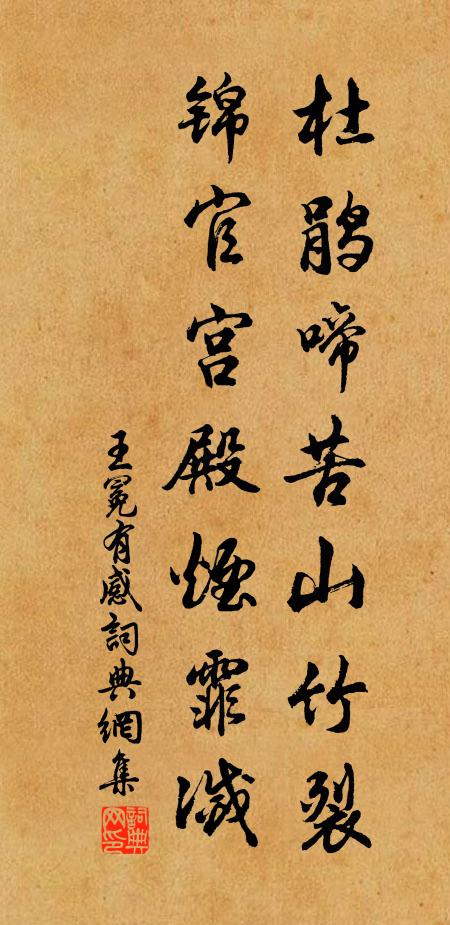 杜鹃啼苦山竹裂
锦官宫殿烟霏灭
王冕有感詞典網集
詞典网印